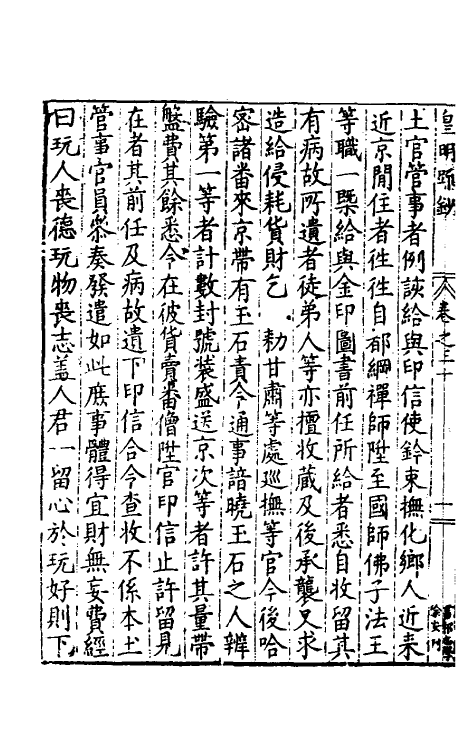 皇明疏鈔
卷之三十
土官管事者例該給與印信使鈐束撫化鄉人近来
近京閒住者徃徃自都綱禪師陞至國師佛子法王
等職一槩給與金印圖書前任所給者悉自收留其
有病故所遺者徒弟人等亦擅收藏及後承襲又求
造給侵耗貨財乞　勅甘肅等處巡撫等官今後哈
密諸番來京帶有玉石責令通事諳曉玉石之人辨
驗第一等者計數封號裝盛送京次等者許其量帶
盤費其餘悉令在彼貨賣番僧陞官印信止許留見
在者其前任及病故遺下印信合令查收不係本土
管事官員叅奏發遣如此庶事體得宜財無妄費經
曰玩人喪德玩物喪志盖人君一留心於玩好則下